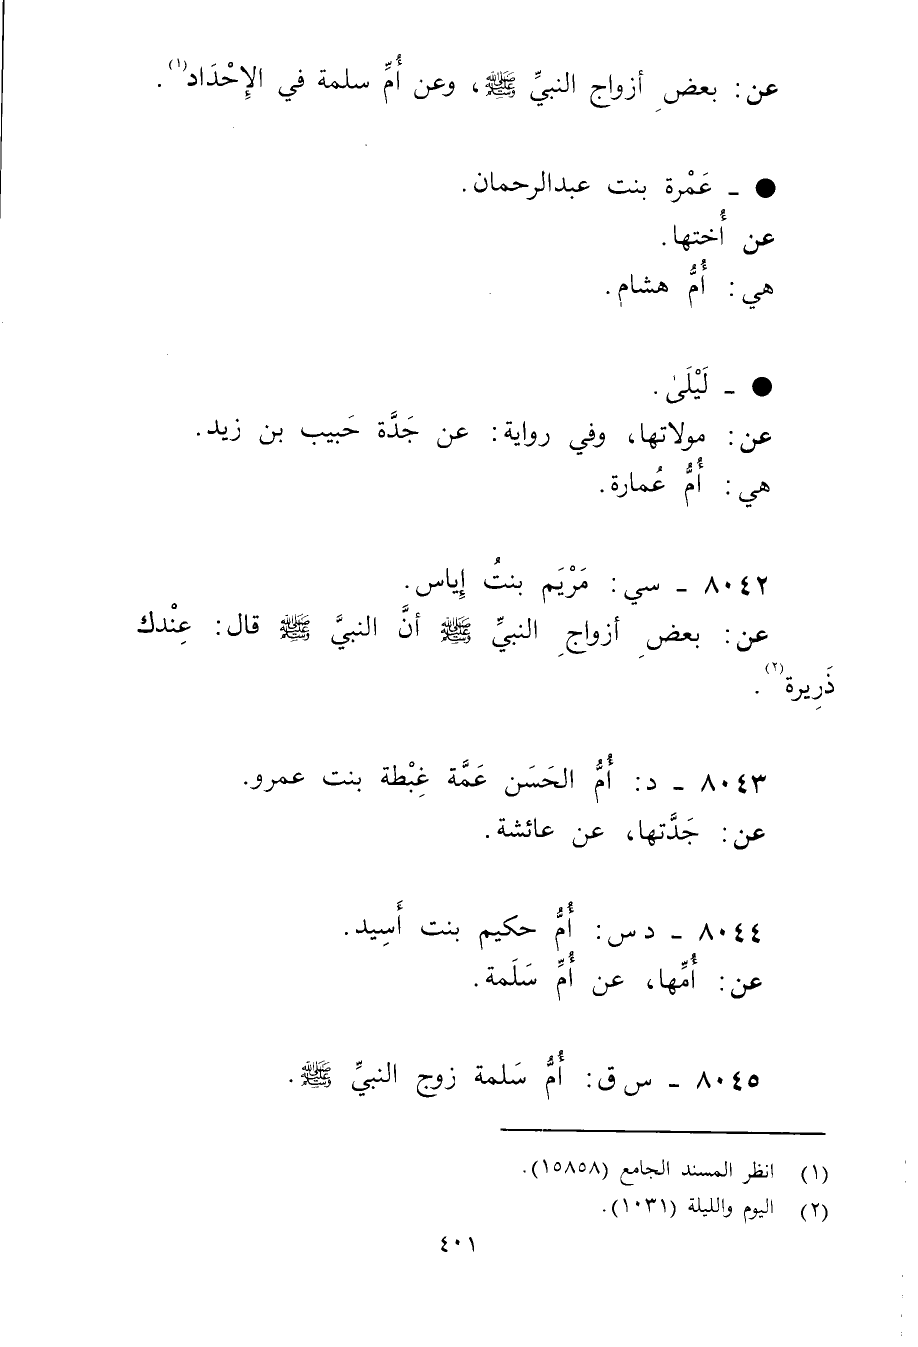 عن: بعضِ أزواج النبيِّ ﷺ، وعن أُمِّ سلمة في الإِحْدَاد(١).
● ـ عَمْرة بنت عبدالرحمان.
عن أُختها.
هي: أُمُّ هشام.
● ـ لَيْلَىٰ.
عن: مولاتها، وفي رواية: عن جَدَّة حَبيب بن زيد.
هي: أُمُّ عُمارة.
٨٠٤٢ ـ سي: مَرْيَم بنتُ إِياس.
عن: بعضِ أزواجِ النبيِّ ﷺ أنَّ النبيَّ ﷺ قال: عِنْدك
ذَرِيرة(٢).
٨٠٤٣ ـ د: أُمُّ الحَسَن عَمَّة غِبْطة بنت عمرو.
عن: جَدَّتها، عن عائشة.
٨٠٤٤ ـ د س: أُمُّ حكيم بنت أَسِيد.
عن: أُمِّها، عن أُمِّ سَلَمة.
٨٠٤٥ ـ س ق: أُمُّ سَلمة زوج النبيِّ ﷺ.
(١) انظر المسند الجامع (١٥٨٥٨).
(٢) اليوم والليلة (١٠٣١).
٤٠١